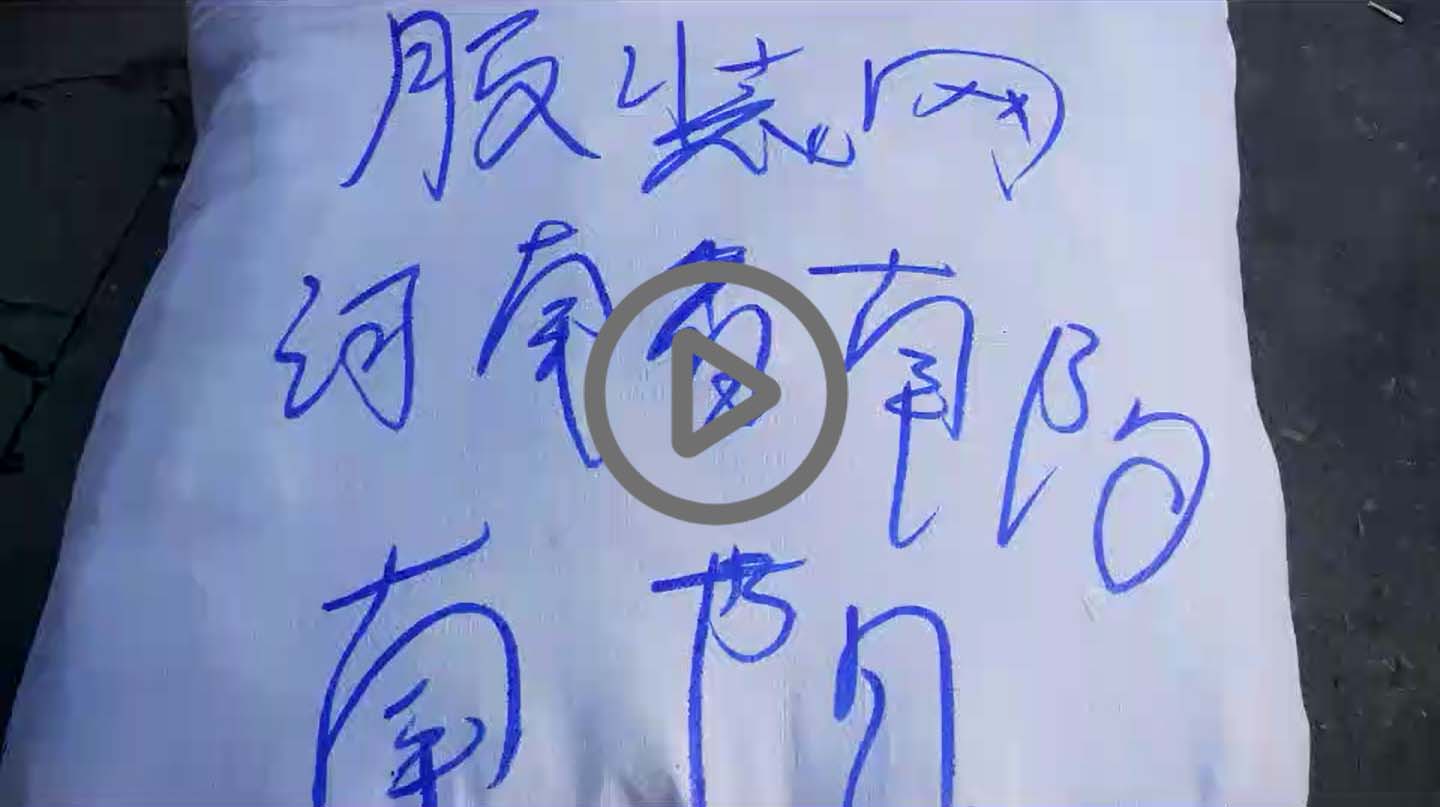 服装网
河南省南阳
南阳